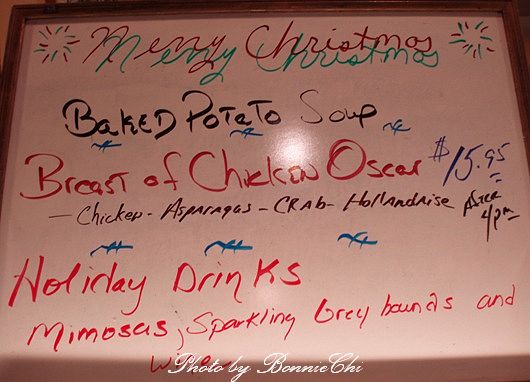 Merry Christmas
Baked Potato Soup
Breast of Chicken Oscar $15.95
- Chicken - Asparagas - Crab - Hollandaise After 4pm
Holiday Drinks
Mimosas, Sparkling Greyhounds and
Photo by BonnieChi